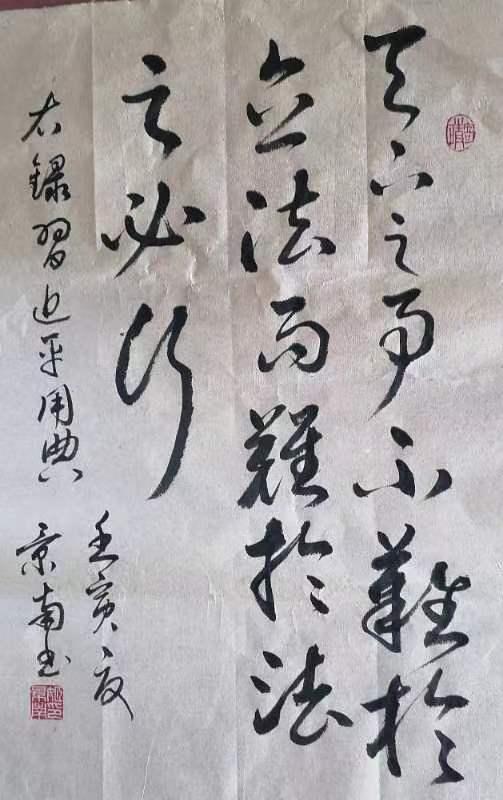 天下之事不難於
立法而難於法
之必行
右錄習近平用典
壬寅夏
景南书